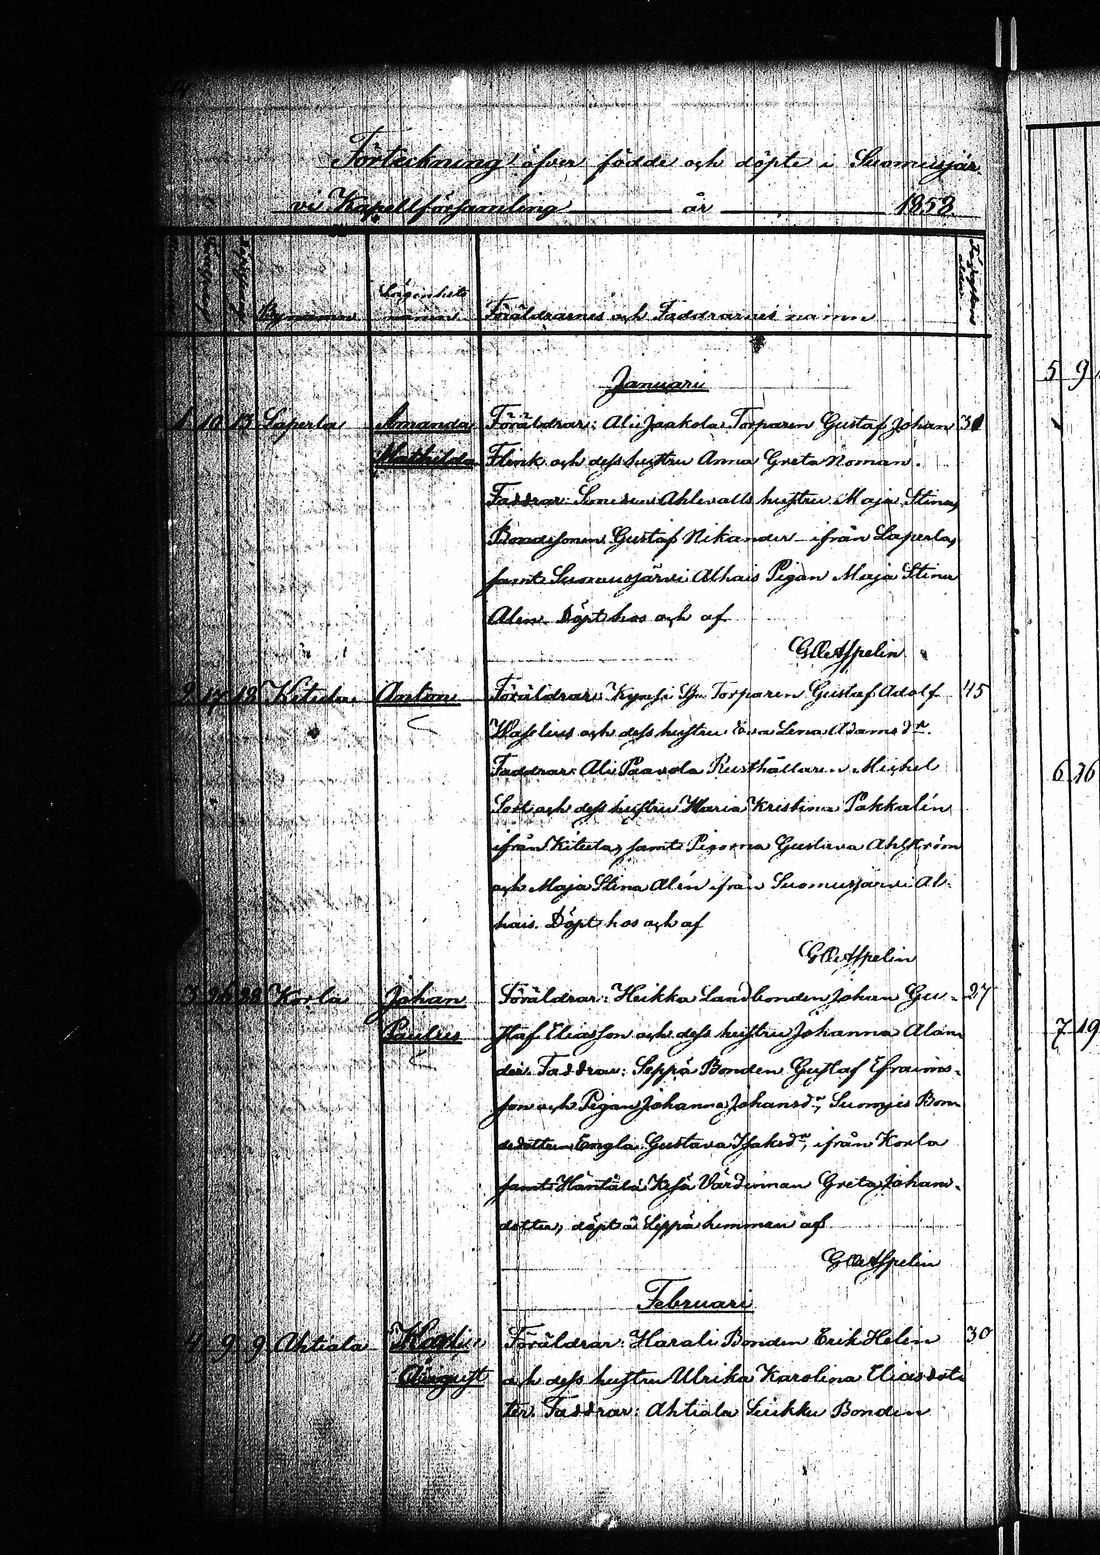 Förteckning öfver födde och döpte i Suomusjär
vi Kapellförsamling år 1858.
Bynamn
Lägenhets
namn
Föräldrarnes och Faddrarnes namn
Januari
1 10 13 Laperla Amanda Föräldrar: Ali Jaakola Torparen Gustaf Johan 31
Mathilda Flink och dess hustru Anna Greta Noman.
Faddrar: Smeden Ahlvalls hustru Maja Stina,
Bondesonen Gustaf Nikander ifrån Laperla,
samt Suomusjärvi Alhais Pigan Maja Stina
Alen. Döpt hos och af
G Aspelin
2 17 18 Kitula Anton Föräldrar: Torparen Gustaf Adolf 45
och dess hustru Eva Lena Adamsdr.
Faddrar: Ali Paavola Rusthållaren Michel
och dess hustru Maria Kristina Pakkalin
ifrån Kitula, samt Pigorna Gustava Ahlström
och Maja Stina Alén ifrån Suomusjärvi Al-
hais. Döpt hos och af
G Aspelin
3 26 28 Korla Johan Föräldrar: Heikka Landbonden Johan Gu- 27
Paulus staf Eliasson och dess hustru Johanna Alan
der. Faddrar: Seppä Bonden Gustaf Efraims-
son och Pigan Johanna Johansdr, Bon
dedottern Engla Gustava Isaksdr, ifrån Korla
samt Värdinnan Greta Johans-
dotter, döpt å Seppä hemman af
G Aspelin
Februari
4 9 9 Ahtiala Karl Föräldrar: Harali Bonden Erik Helin 30
August och dess hustru Ulrika Karolina Eliasdot
ter. Faddrar: Ahtiala Bonden
5 9
6 16
7 19